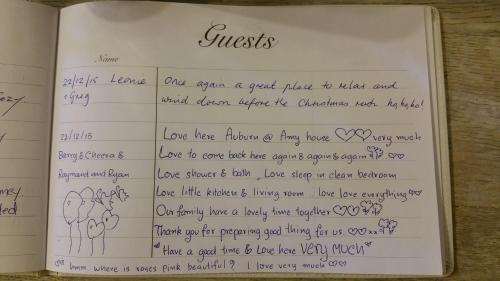 Guests
Name
22/12/15 Leonie
+ Greg
Once again a great place to relax and
wind down before the Christmas rush ha,ha,ha!
22/12/15
Barry & Cheera &
Raymond and Ryan
Love here Auburn @ Amy house ♡♡ very much
Love to come back here again & again & again ♡♡
Love shower & bath, Love sleep in clean bedroom
Love little kitchen & living room love love everything ♡♡
Our family have a lovely time together ♡♡
Thank you for preparing good thing for us. ♡♡ xx
"Have a good time & Love here VERY MUCH"
hmm where is roses pink beautiful? I love very much ♡♡